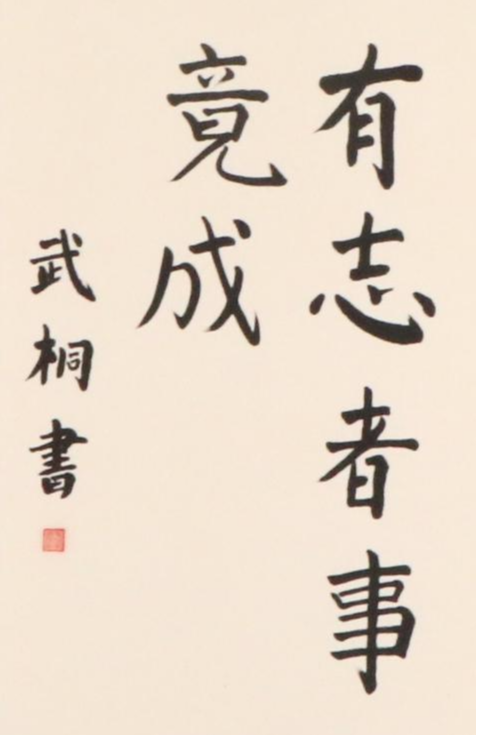 有志者事
竟成
武桐書